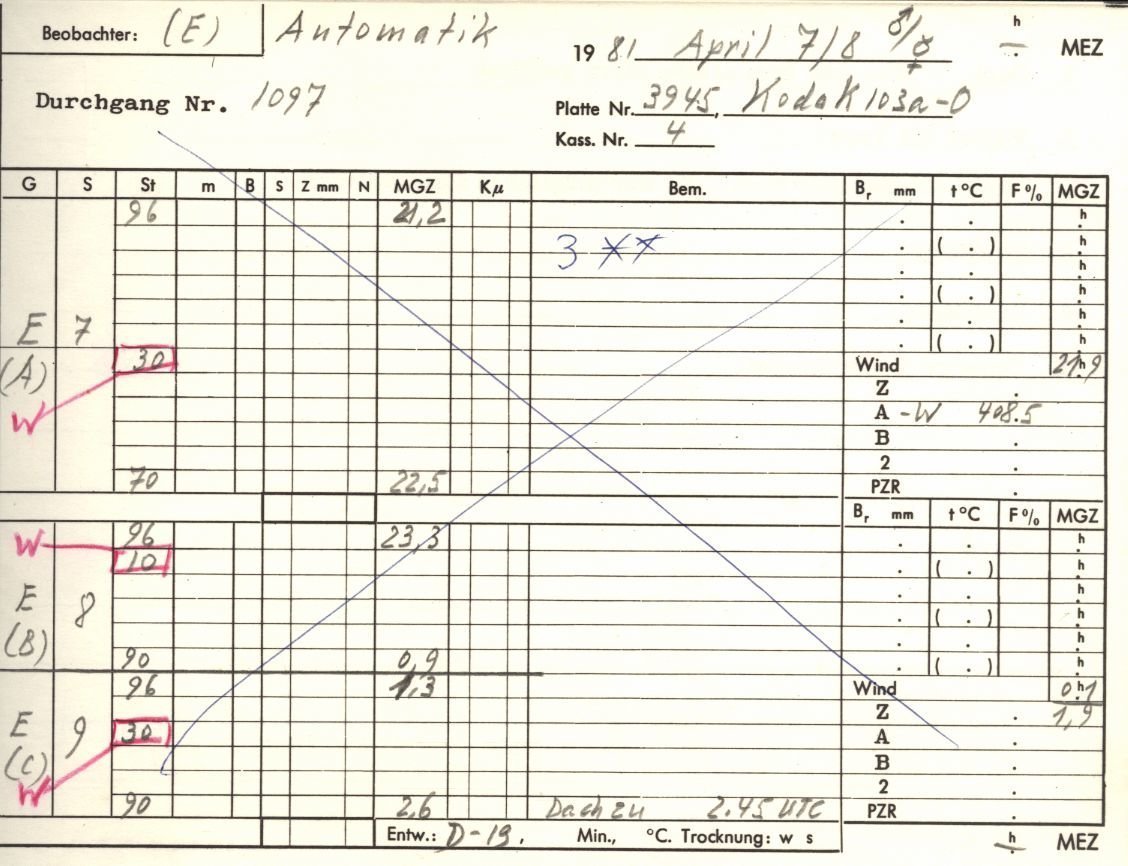 Beobachter: (E) Automatik
1981 April 7/8 h MEZ
Durchgang Nr. 1097
Platte Nr. 3945, Kodak 103a-O
Kass. Nr. 4
G S St m B S Z mm N MGZ Kμ Bem. Br mm t °C F % MGZ
96 21,2 h
3 ** ( . ) h
h
( . ) h
E 7 h
( . ) h
(A) 30 Wind 21h,9
Z
W A -W 408.5
B
2
70 22,5 PZR
Br mm t °C F % MGZ
W 96 23,3 h
10 ( . ) h
E 8 h
(B) ( . ) h
h
90 0,9 ( . ) h
96 1,3 Wind 0h,1
E 9 Z 1,9
30 A
(C) B
W 2
90 2,6 Dach zu 2.45 UTC PZR
Entw.: D-19, Min., °C. Trocknung: w s h MEZ